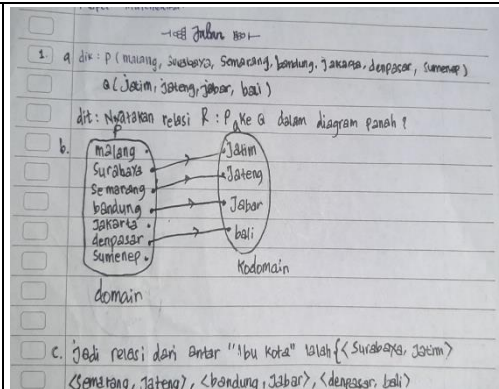 Jaban
1. a. dik : P ( malang, surabaya, Semarang, bandung, jakarta, denpasar, sumenep )
Q ( Jatim, jateng, jabar, bali )
dit : Nyatakan relasi R : P ke Q dalam diagram panah ?
P Q
b. malang Jatim
Surabaya Jateng
Semarang Jabar
bandung bali
Jakarta
denpasar
Sumenep
domain Kodomain
c. jadi relasi dari antar "Ibu Kota" ialah {< Surabaya, Jatim >
< Semarang, Jateng >, < bandung, Jabar >, < denpasar, bali >